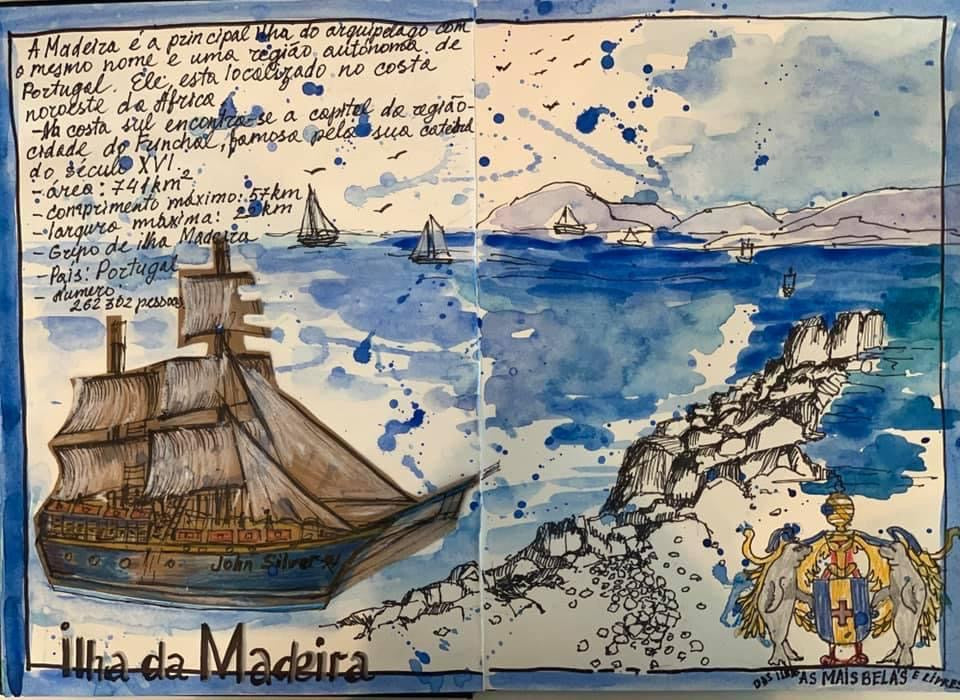 A Madeira é a principal ilha do arquipélago com
o mesmo nome e uma região autónoma de
Portugal. Ele esta localizado no costa
noroeste da África.
-Na costa sul encontra-se a capital da região-
cidade do Funchal, famosa pela sua catedral
do século XVI.
- área: 741km²
- comprimento máximo: 57km
- largura máxima: 22km
- Grupo de ilha Madeira
- País: Portugal
- Numero:
262 302 pessoas
John Silver
ilha da Madeira
DAS ILHAS AS MAIS BELAS E LIVRES